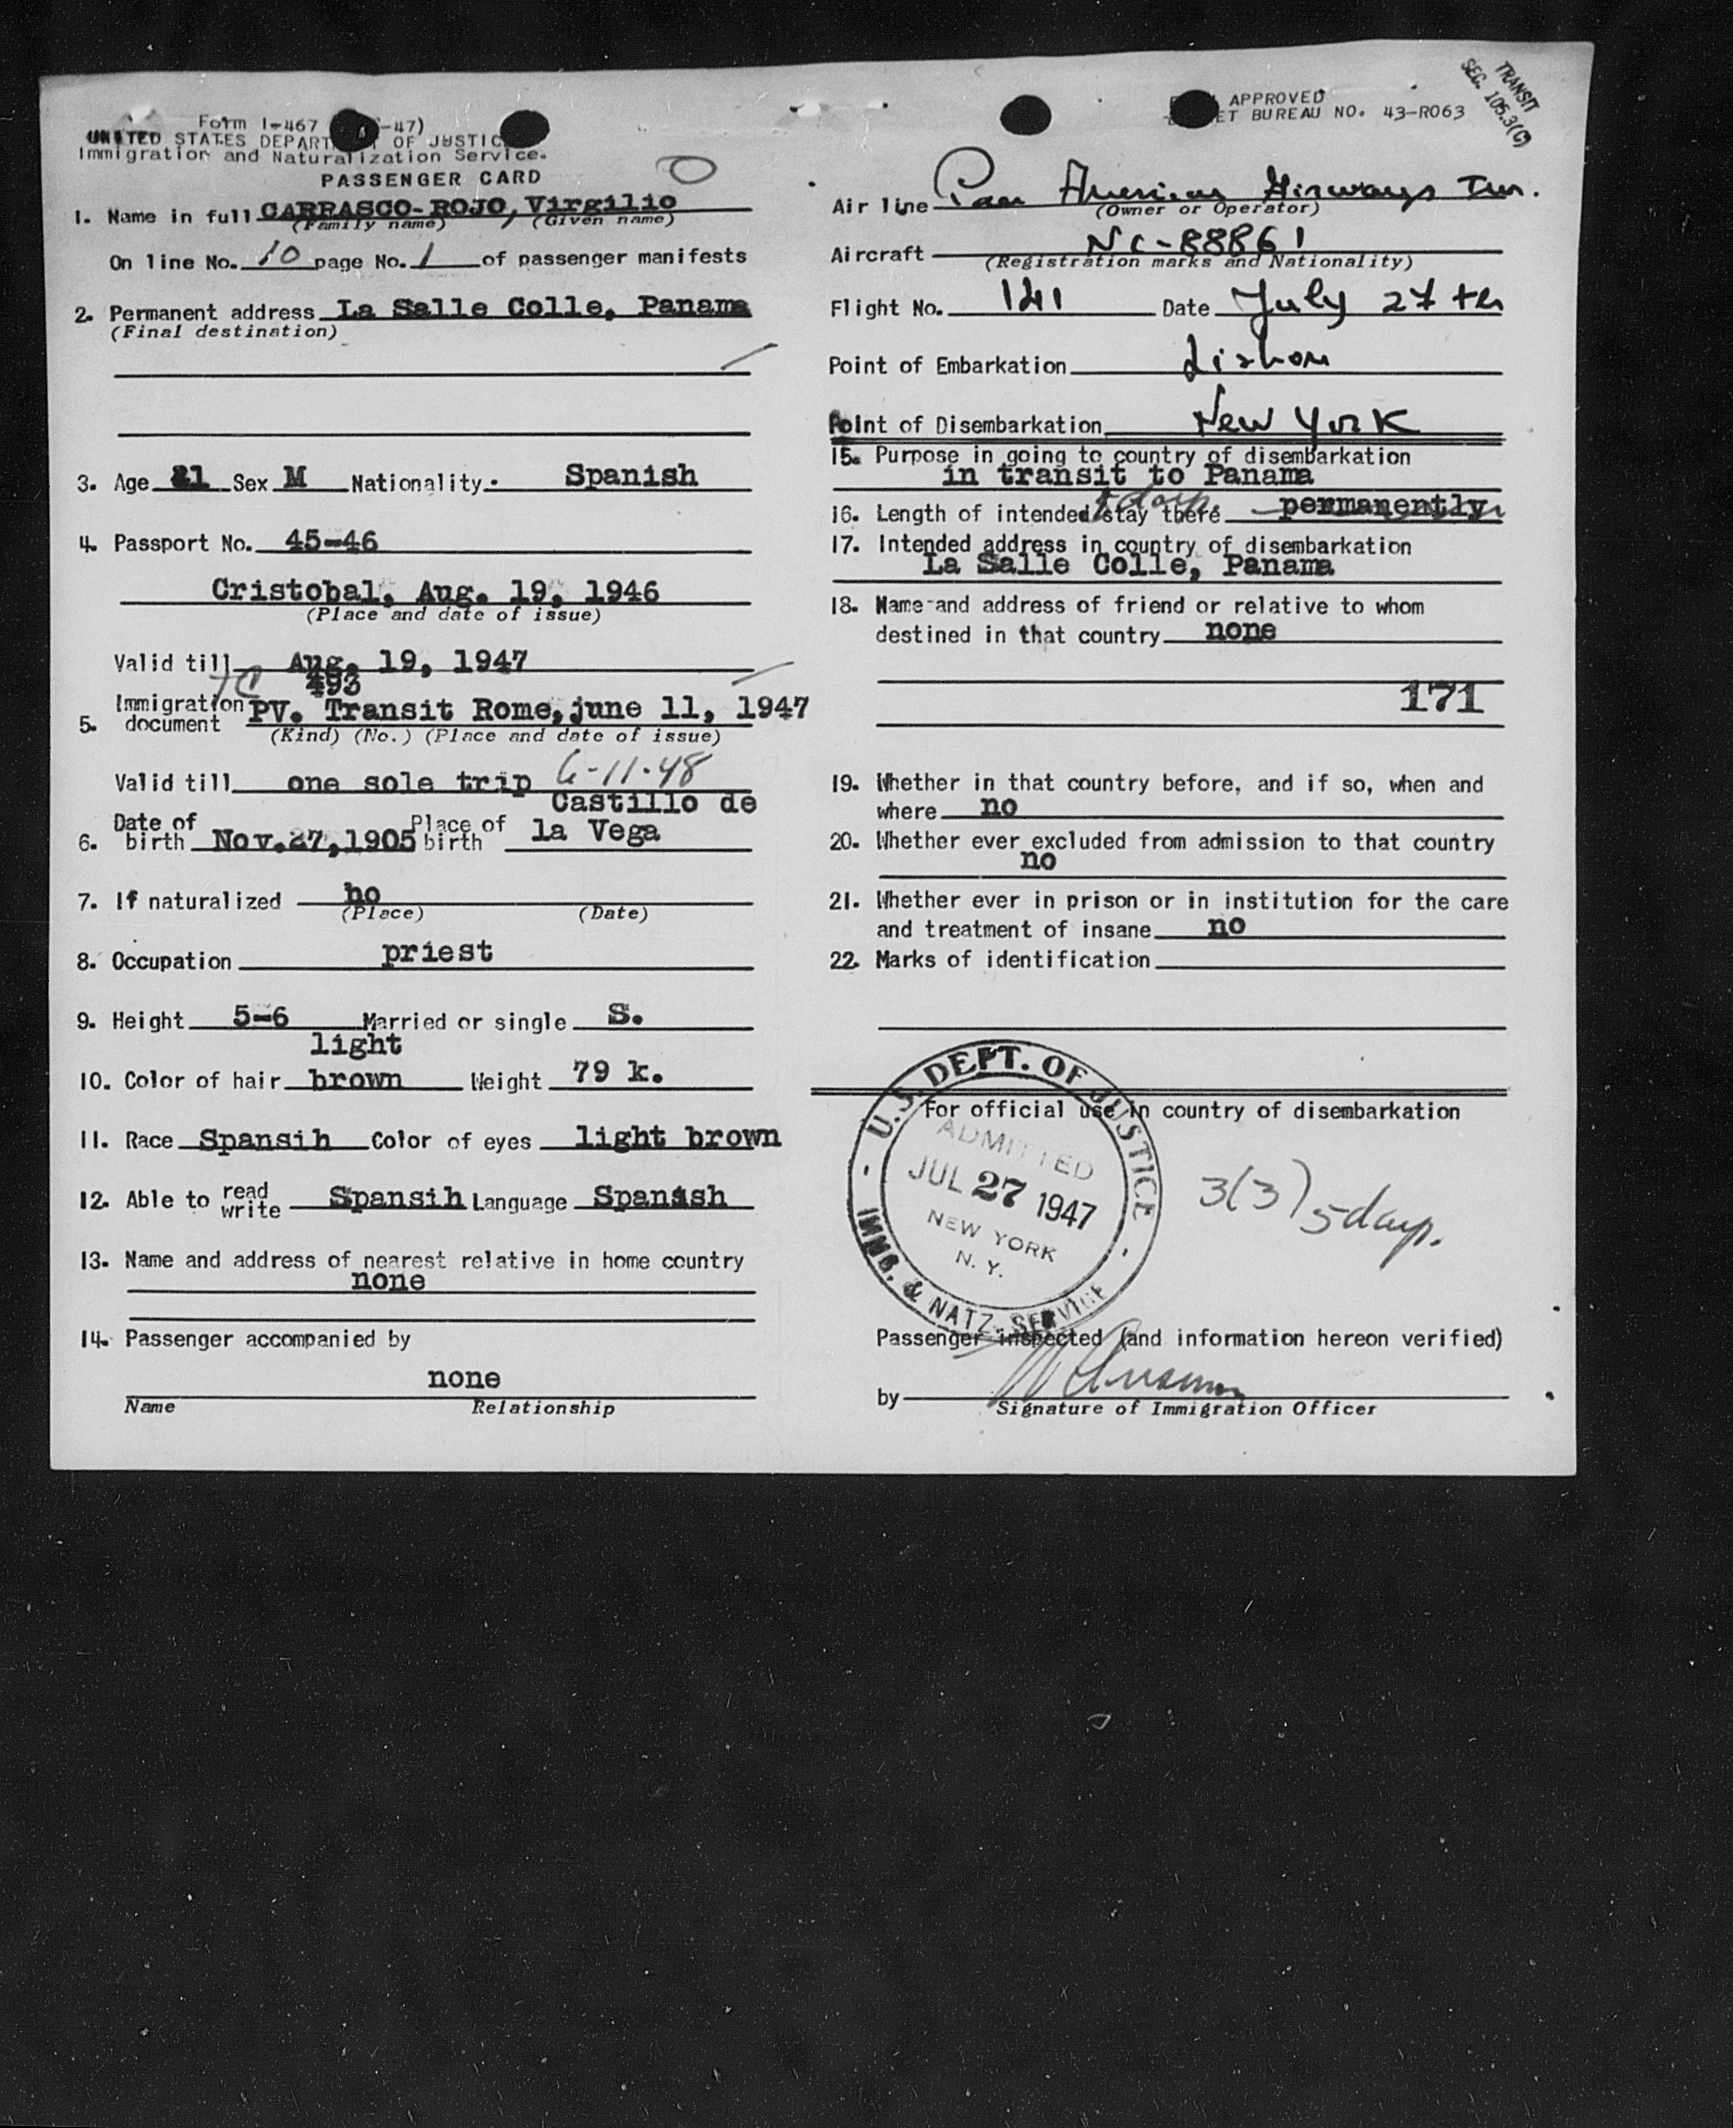 Form I-467 -47)
UNITED STATES DEPART OF JUSTIC
Immigration and Naturalization Service.
PASSENGER CARD
1. Name in full CARRASCO-ROJO, Virgilio
(Family name) (Given name)
On line No. 10 page No. 1 of passenger manifests
2. Permanent address La Salle Colle, Panama
(Final destination)
3. Age 41 Sex M Nationality. Spanish
4. Passport No. 45-46
Cristobal, Aug. 19, 1946
(Place and date of issue)
Valid till Aug. 19, 1947
493
5. Immigration document PV. Transit Rome, june 11, 1947
(Kind) (No.) (Place and date of issue)
Valid till one sole trip 6-11-48
Castillo de
6. Date of birth Nov.27,1905 Place of birth la Vega
7. If naturalized no
(Place) (Date)
8. Occupation priest
9. Height 5-6 Married or single S.
light
10. Color of hair brown Weight 79 k.
11. Race Spansih Color of eyes light brown
12. Able to read write Spansih Language Spanish
13. Name and address of nearest relative in home country
none
14. Passenger accompanied by
none
Name Relationship
TRANSIT
SEC. 105.3(C)
APPROVED
ET BUREAU NO. 43-R063
Air line Pan American Airways Inc.
(Owner or Operator)
Aircraft NC-88861
(Registration marks and Nationality)
Flight No. 141 Date July 27 th
Point of Embarkation Lisbon
Point of Disembarkation New York
15. Purpose in going to country of disembarkation
in transit to Panama
16. Length of intended stay there 5 days. permanently
17. Intended address in country of disembarkation
La Salle Colle, Panama
18. Name and address of friend or relative to whom
destined in that country none
171
19. Whether in that country before, and if so, when and
where no
20. Whether ever excluded from admission to that country
no
21. Whether ever in prison or in institution for the care
and treatment of insane no
22. Marks of identification
For official use in country of disembarkation
U.S. DEPT. OF JUSTICE
ADMITTED
JUL 27 1947
NEW YORK
N. Y.
IMMG. & NATZ. SERVICE
3(3) 5 days.
Passenger inspected (and information hereon verified)
by
Signature of Immigration Officer